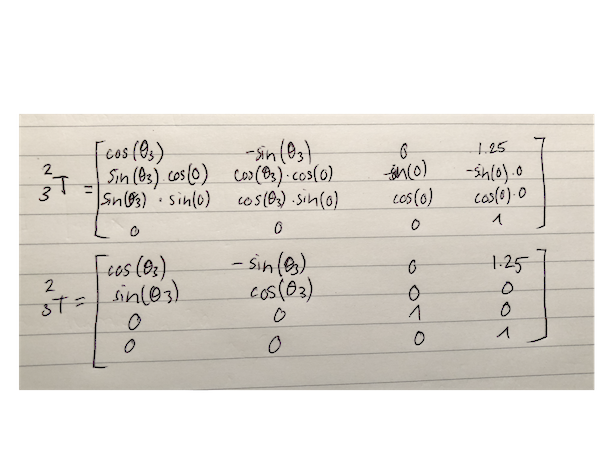 cos(θ₃) -sin(θ₃) 0 1.25
²₃T = sin(θ₃) cos(0) cos(θ₃)·cos(0) -sin(0) -sin(0)·0
sin(θ₃) · sin(0) cos(θ₃)·sin(0) cos(0) cos(0)·0
0 0 0 1
cos(θ₃) -sin(θ₃) 0 1.25
²₃T = sin(θ₃) cos(θ₃) 0 0
0 0 1 0
0 0 0 1